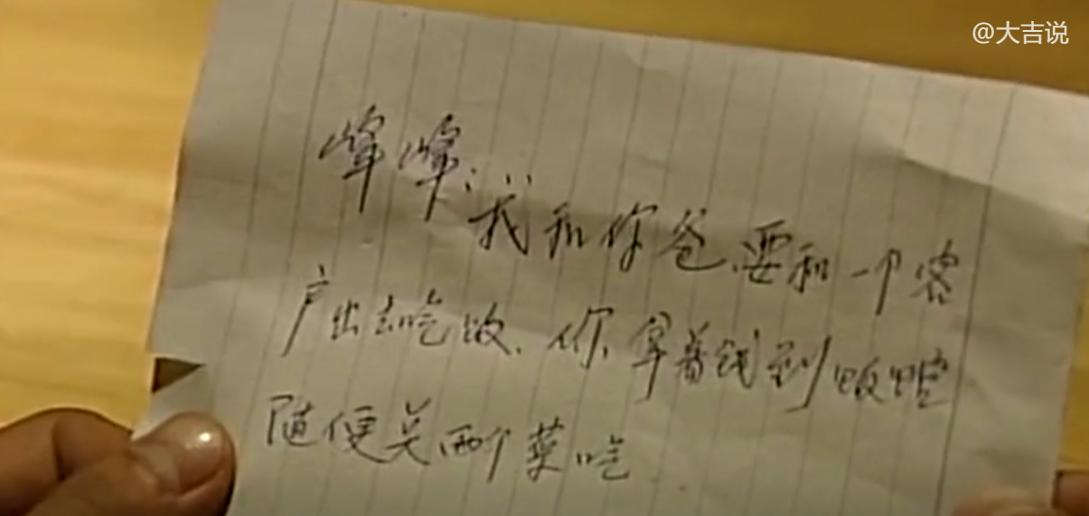 @大吉说
峰峰：我和你爸要和一个客
户出去吃饭、你拿着钱到饭馆
随便买两个菜吃